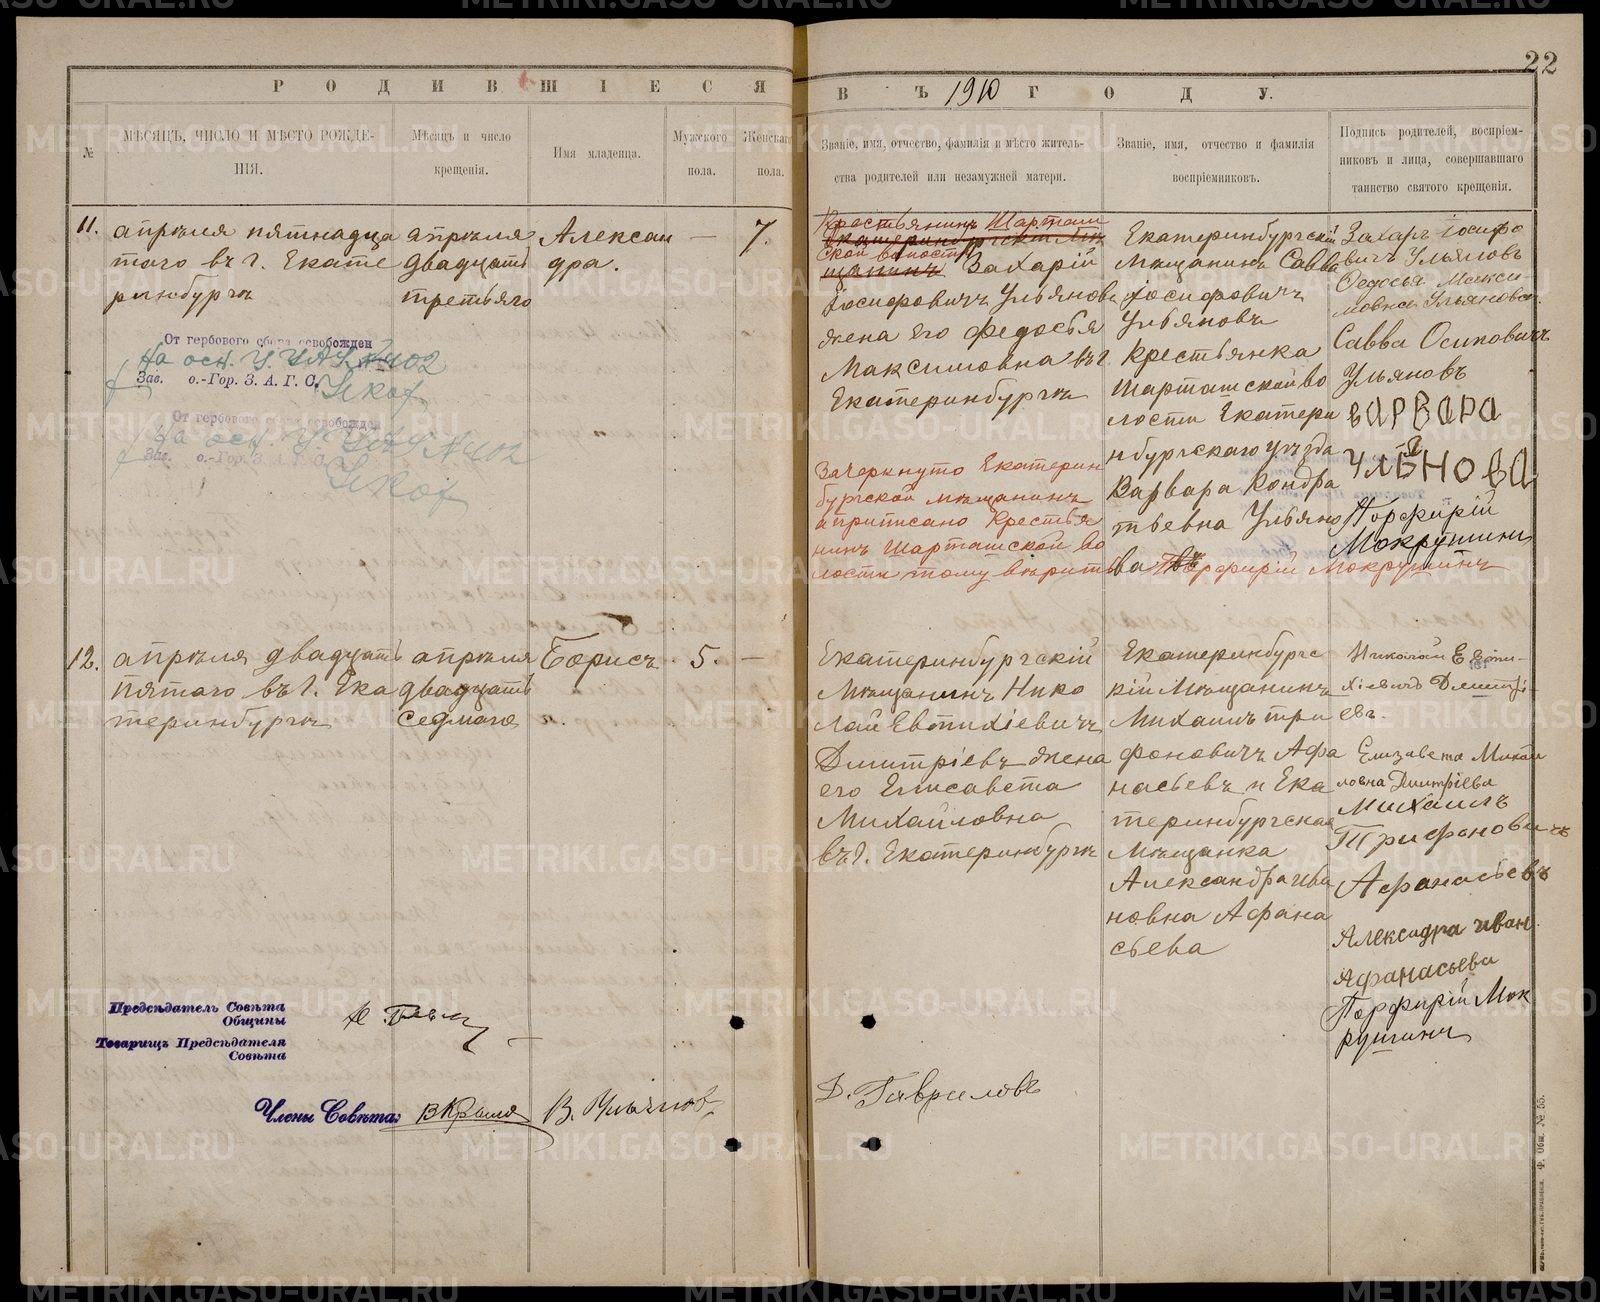 22
РОДИВШІЕСЯ
ВЪ 1910 ГОДУ.
№
МѢСЯЦЪ, ЧИСЛО И МѢСТО РОЖДЕ-
НІЯ.
Мѣсяцъ и число
крещенія.
Имя младенца.
Мужского
пола.
Женскаго
пола.
Званіе, имя, отчество, фамилія и мѣсто житель-
ства родителей или незамужней матери.
Званіе, имя, отчество и фамилія
воспріемниковъ.
Подпись родителей, воспріем-
никовъ и лица, совершавшаго
таинство святого крещенія.
11.
апрѣля пятнадца
таго въ г. Екате
ринбургѣ
апрѣля
двадцать
третьяго
Алексан
дра.
—
7.
Крестьянинъ Шарташ
Екатеринбургскій Мѣ
ской волости
щанинъ Захарій
Іосифовичъ Ульяновъ
жена его Федосья
Максимовна въ г.
Екатеринбургѣ
Зачеркнуто Екатерин
бургской мѣщанинъ
а приписано Крестья
нинъ Шарташской во
лости тому вѣрить
Екатеринбургскій
Мѣщанинъ Савва
Іосифовичъ
Ульяновъ
Крестьянка
Шарташской во
лости Екатери
нбургскаго уѣзда
Варвара Кондра
тьевна Ульяно
ва
Порфирій Мокрушинъ
Захаръ Іосифо
вичъ Ульяновъ
Федосья Макси-
мовна Ульянова.
Савва Осиповичъ
Ульяновъ
ВАРВАРА
УЛЬЯНОВА
Порфирій
Мокрушинъ
От гербового сбора освобожден
На осн. №402
Зав. о.-Гор. З. А. Г. С.
От гербового сбора освобожден
На осн. №402
Зав. о.-Гор. З. А. Г. С.
12.
апрѣля двадцать
пятаго въ г. Ека
теринбургѣ
апрѣля
двадцать
седмаго
Борисъ
5.
—
Екатеринбургскій
Мѣщанинъ Нико
лай Евтихіевичъ
Дмитріевъ жена
его Елисавета
Михайловна
въ г. Екатеринбургѣ
Екатеринбургс
кій Мѣщанинъ
Михаилъ три
фоновичъ Афа
насьевъ и Ека
теринбургская
Мѣщанка
Александра ива
новна Афана
сьева
Николай Евти-
хіевичъ Дмитрі-
евъ.
Елизавета Михай
ловна Дмитріева
Михаилъ
Трифоновичъ
Афанасьевъ
Александра иван
Афанасьева
Порфирій Мок
рушинъ
Предсѣдатель Совѣта
Общины
Товарищъ Предсѣдателя
Совѣта
Члены Совѣта:
В. Ульянов
Гавриловъ
METRIKI.GASO-URAL.RU